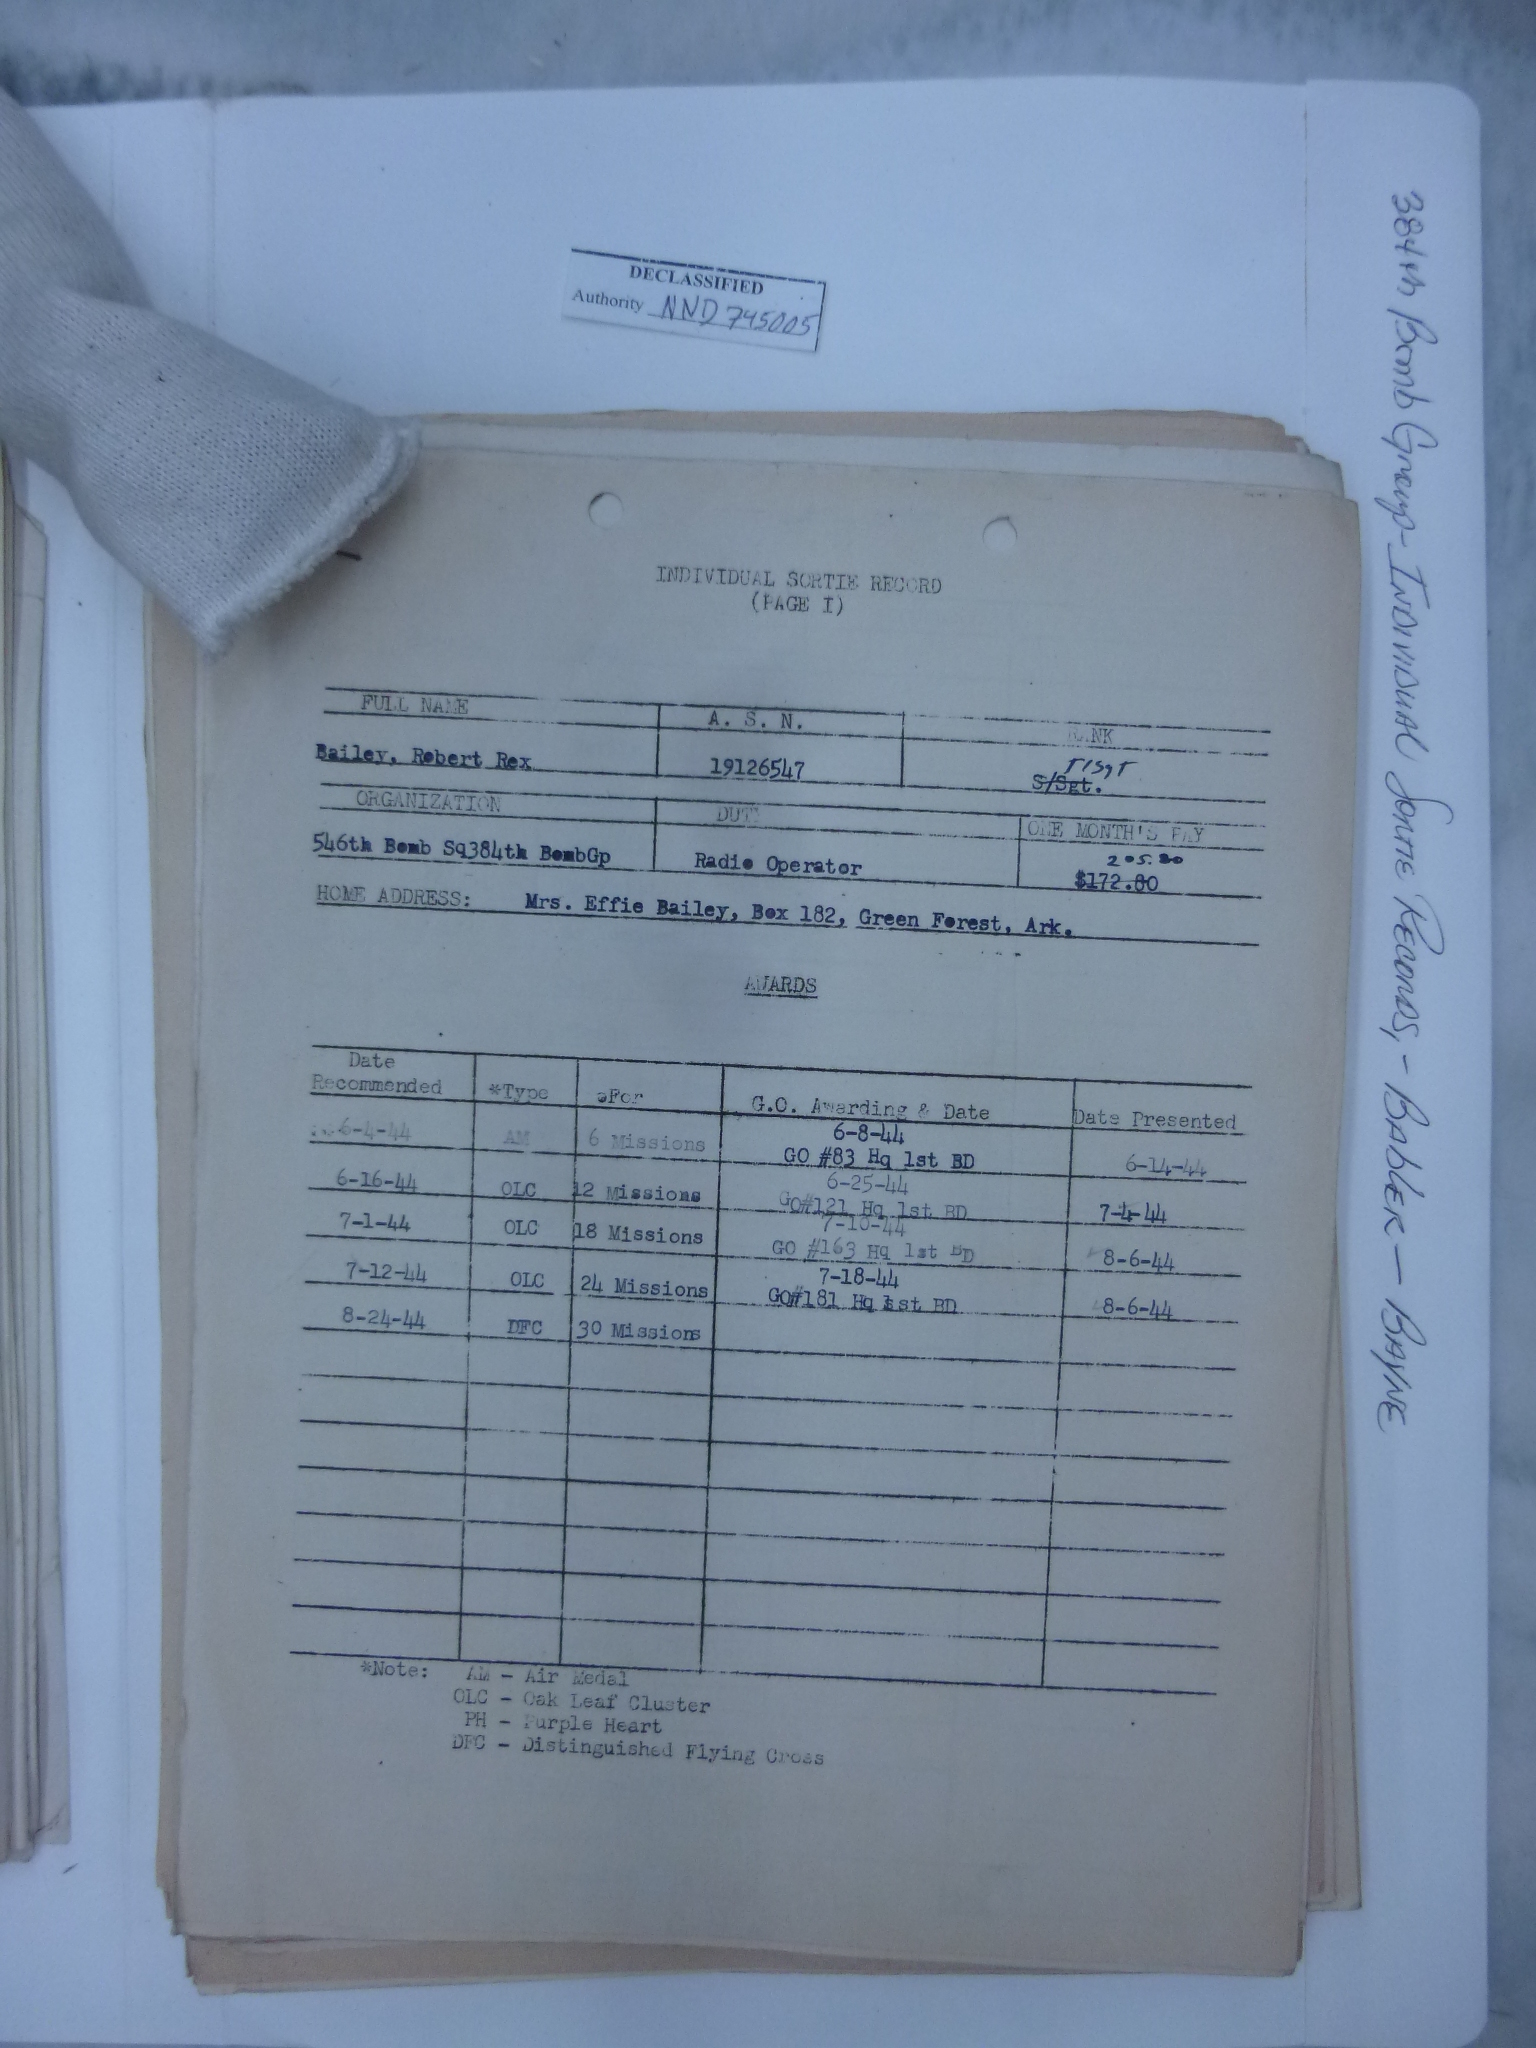 DECLASSIFIED
Authority NND 745005
384th Bomb Group - Individual Sortie Records, - Babler - Bayne
INDIVIDUAL SORTIE RECORD
(PAGE I)
FULL NAME A. S. N. RANK
T/Sgt
Bailey, Robert Rex 19126547 S/Sgt.
ORGANIZATION DUTY ONE MONTH'S PAY
205.80
546th Bomb Sq384th BombGp Radio Operator $172.80
HOME ADDRESS: Mrs. Effie Bailey, Box 182, Green Forest, Ark.
AWARDS
Date
Recommended *Type For G.O. Awarding & Date Date Presented
6-8-44
6-4-44 AM 6 Missions GO #83 Hq 1st BD 6-14-44
6-25-44
6-16-44 OLC 12 Missions GO#121 Hq 1st BD 7-4-44
7-10-44
7-1-44 OLC 18 Missions GO #163 Hq 1st BD 8-6-44
7-18-44
7-12-44 OLC 24 Missions GO#181 Hq 1st BD 8-6-44
8-24-44 DFC 30 Missions
*Note: AM - Air Medal
OLC - Oak Leaf Cluster
PH - Purple Heart
DFC - Distinguished Flying Cross